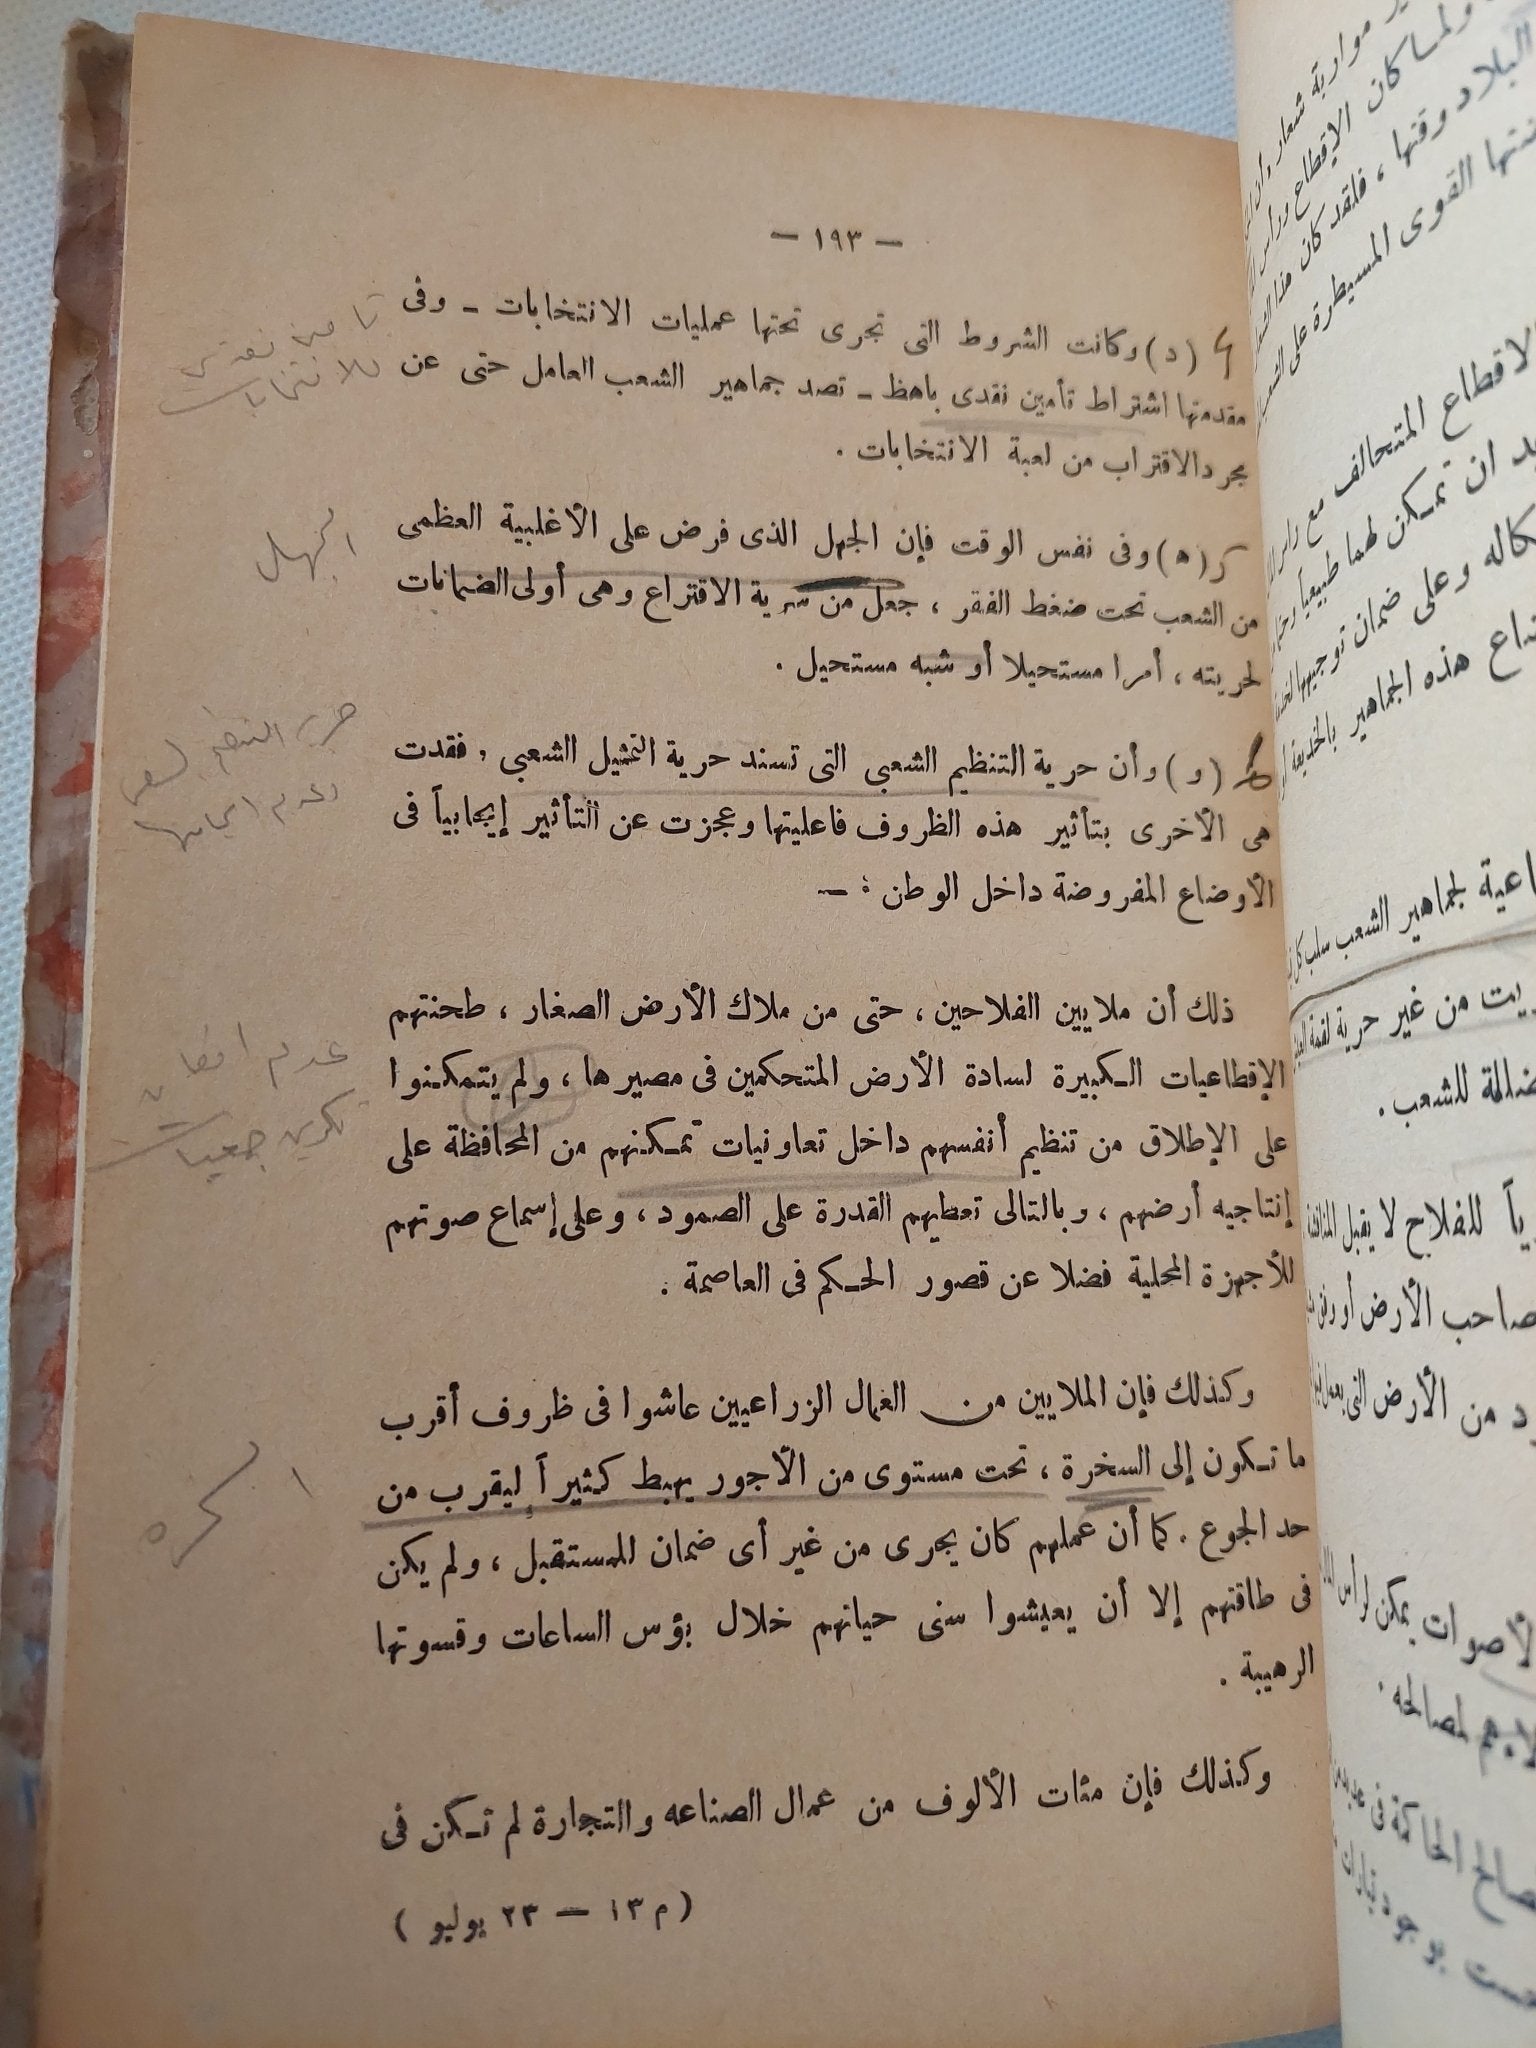 — ١٩٣ —
(د) وكانت الشروط التى تجرى تحتها عمليات الانتخابات - وفى
مقدمتها اشتراط تأمين نقدى باهظ - تصد جماهير الشعب العامل حتى عن
مجرد الاقتراب من لعبة الانتخابات .
(ه) وفى نفس الوقت فإن الجهل الذى فرض على الأغلبية العظمى
من الشعب تحت ضغط الفقر ، جعل من سرية الاقتراع وهى أولى الضمانات
لحريته ، أمرا مستحيلا أو شبه مستحيل .
(و) وأن حرية التنظيم الشعبي التى تسند حرية التمثيل الشعبي ، فقدت
هى الأخرى بتأثير هذه الظروف فاعليتها وعجزت عن التأثير إيجابياً فى
الأوضاع المفروضة داخل الوطن : -
ذلك أن ملايين الفلاحين ، حتى من ملاك الأرض الصغار ، طحنتهم
الإقطاعيات الكبيرة لسادة الأرض المتحكمين فى مصيرها ، ولم يتمكنوا
على الإطلاق من تنظيم أنفسهم داخل تعاونيات تمكنهم من المحافظة على
إنتاجيه أرضهم ، وبالتالى تعطيهم القدرة على الصمود ، وعلى إسماع صوتهم
للأجهزة المحلية فضلا عن قصور الحكم فى العاصمة .
وكذلك فإن الملايين من العمال الزراعيين عاشوا فى ظروف أقرب
ما تكون إلى السخرة ، تحت مستوى من الأجور يهبط كثيراً ليقرب من
حد الجوع . كما أن عملهم كان يجرى من غير أى ضمان للمستقبل ، ولم يكن
فى طاقتهم إلا أن يعيشوا سنى حياتهم خلال بؤس الساعات وقسوتها
الرهيبة .
وكذلك فإن مئات الألوف من عمال الصناعه والتجارة لم تكن فى
( م ١٣ — ٢٣ يوليو )
تامين نقدى
للانتخابات
الجهل
حرية التنظيم الشعبى
وعدم
عدم
تكوين جمعيات
السخره
الإقطاع المتحالف مع
القوى المسيطرة على الشعب
لجماهير الشعب
من غير حرية لقمة
للشعب .
للفلاح لا يقبل
صاحب الأرض أو
من الأرض التى
لمصالحه .